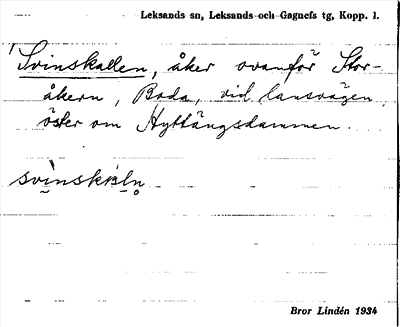 Leksands sn, Leksands och Gagnefs tg, Kopp. l.
Svinskallen, åker ovanför Stor-
åkern, Boda, vid lansvägen,
öster om Hyttängsdammen.
Bror Lindén 1934